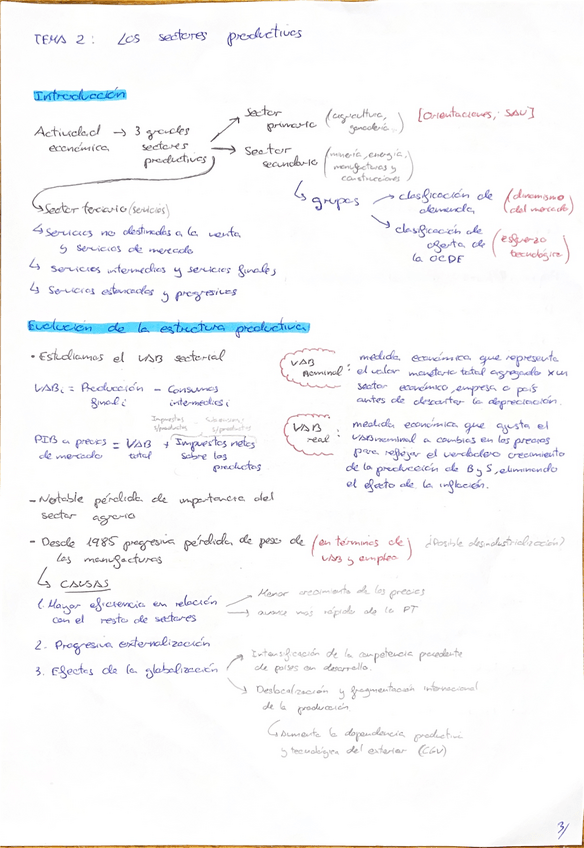 TEMA 2: Los sectores productivos
Introducción
Actividad económica → 3 grandes sectores productivos
→ Sector primario (agricultura, ganadería...) [Orientaciones, SAU]
→ Sector secundario (minería, energía, manufacturas y construcciones)
↳ grupos → clasificación de demanda (dinamismo del mercado)
→ clasificación de oferta de la OCDE (esfuerzo tecnológico)
↳ Sector terciario (servicios)
↳ Servicios no destinados a la venta
y servicios de mercado
↳ Servicios intermedios y servicios finales
↳ Servicios estancados y progresivos
Evolución de la estructura productiva
- Estudiamos el VAB sectorial
VAB i = Producción final i - Consumos intermedios i
Impuestos s/productos - Subvenciones s/productos
PIB a precios de mercado = VAB total + Impuestos netos sobre los productos
VAB Nominal: medida económica que representa
el valor monetario total agregado x un
sector económico, empresa o país
antes de descontar la depreciación.
VAB real: medida económica que ajusta el
VAB nominal a cambios en los precios
para reflejar el verdadero crecimiento
de la producción de B y S, eliminando
el efecto de la inflación.
- Notable pérdida de importancia del
sector agrario
- Desde 1985 progresiva pérdida de peso de las manufacturas (en términos de VAB y empleo) ¿Posible desindustrialización?
↳ CAUSAS
1. Mayor eficiencia en relación
con el resto de sectores
→ Menor crecimiento de los precios
→ avance más rápido de la PT
2. Progresiva externalización
3. Efectos de la globalización
→ Intensificación de la competencia procedente
de países en desarrollo.
→ Deslocalización y fragmentación internacional
de la producción
↳ Aumenta la dependencia productiva
y tecnológica del exterior (CGV)
3/